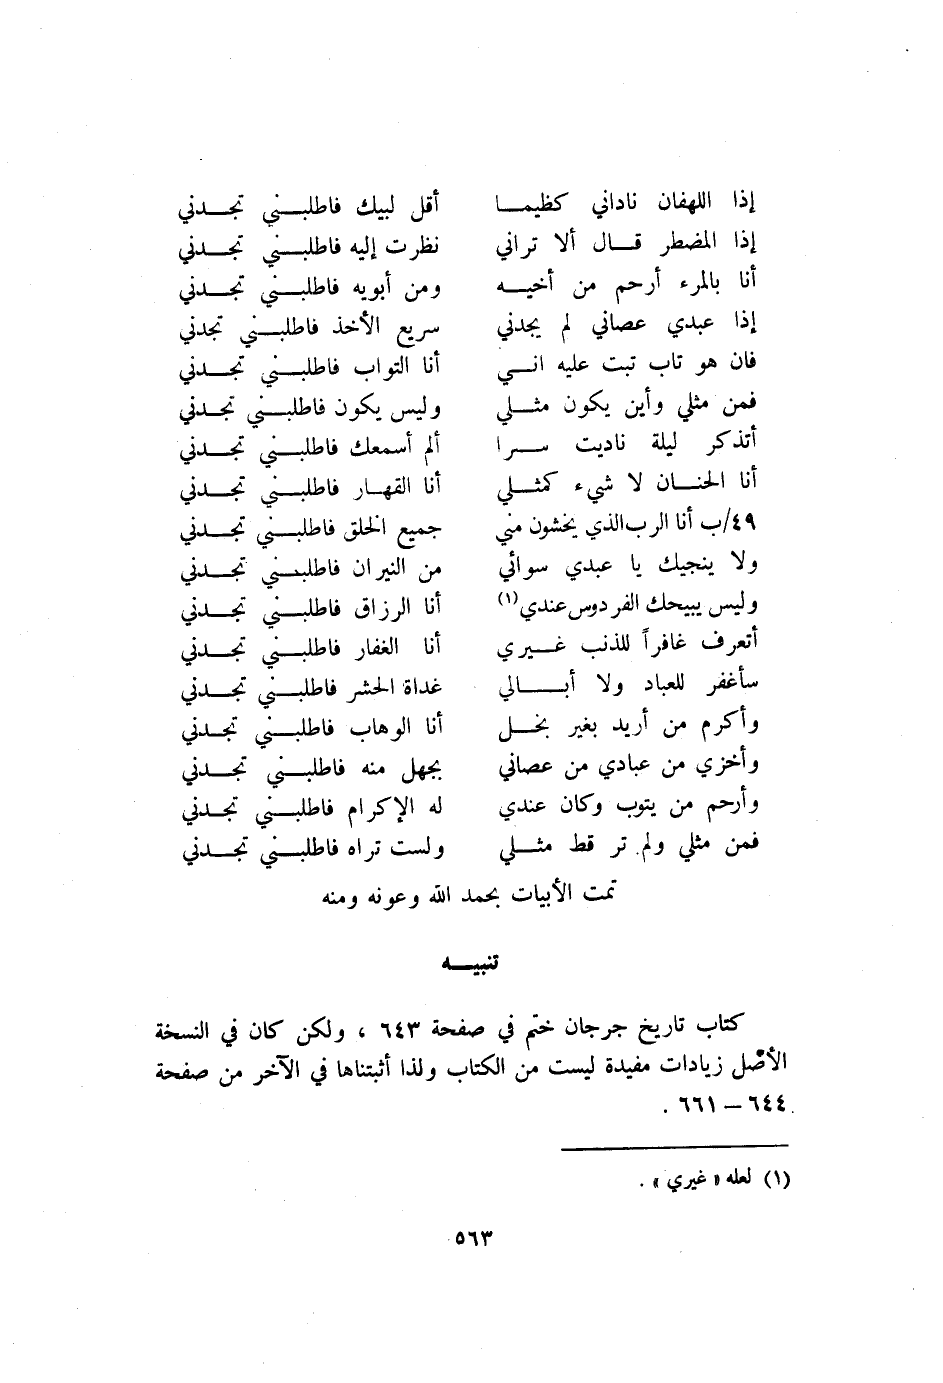 إذا اللهفان ناداني كظيما أقل لبيك فاطلبني تجدني
إذا المضطر قال ألا تراني نظرت إليه فاطلبني تجدني
أنا بالمرء أرحم من أخيه ومن أبويه فاطلبني تجدني
إذا عبدي عصاني لم يجدني سريع الأخذ فاطلبني تجدني
فان هو تاب تبت عليه اني أنا التواب فاطلبني تجدني
فمن مثلي وأين يكون مثلي وليس يكون فاطلبني تجدني
أتذكر ليلة ناديت سرا ألم أسمعك فاطلبني تجدني
أنا الحنان لا شيء كمثلي أنا القهار فاطلبني تجدني
٤٩/ب أنا الرب الذي يخشون مني جميع الخلق فاطلبني تجدني
ولا ينجيك يا عبدي سوائي من النيران فاطلبني تجدني
وليس يبيحك الفردوس عندي(١) أنا الرزاق فاطلبني تجدني
أتعرف غافراً للذنب غيري أنا الغفار فاطلبني تجدني
سأغفر للعباد ولا أبالي غداة الحشر فاطلبني تجدني
وأكرم من أريد بغير بخل أنا الوهاب فاطلبني تجدني
وأخزي من عبادي من عصاني بجهل منه فاطلبني تجدني
وأرحم من يتوب وكان عندي له الإكرام فاطلبني تجدني
فمن مثلي ولم تر قط مثلي ولست تراه فاطلبني تجدني
تمت الأبيات بحمد الله وعونه ومنه
تنبيه
كتاب تاريخ جرجان ختم في صفحة ٦٤٣ ، ولكن كان في النسخة
الأصل زيادات مفيدة ليست من الكتاب ولذا أثبتناها في الآخر من صفحة
٦٤٤ – ٦٦١ .
(١) لعله « غيري » .
٥٦٣